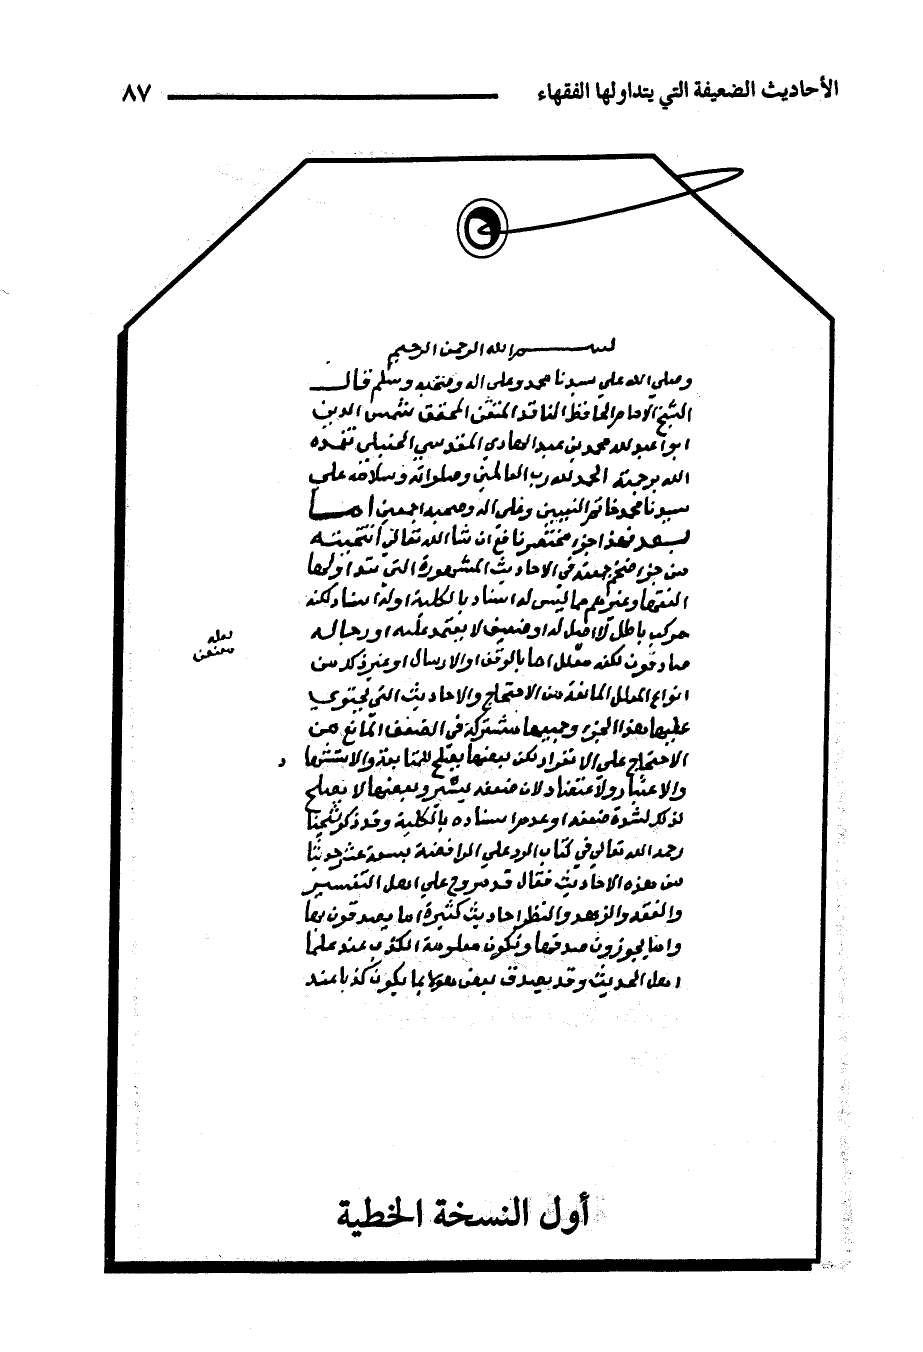 الأحاديث الضعيفة التي يتداولها الفقهاء ٨٧
بسم الله الرحمن الرحيم
وصلى الله على سيدنا محمد وعلى اله وصحبه وسلم قال
الشيخ الامام الحافظ الناقد المتقن المحقق شمس الدين
ابو اعبد لله محمد بن عبد الهادي المقدسي الحنبلي تغمده
الله برحمته الحمد لله رب العالمين وصلواته وسلامه على
سيدنا محمد خاتم النبيين وعلى اله وصحبه اجمعين اما
بعد فهذا جزء مختصر نافع ان شا الله تعالى انتخبته
من جزء ضخم جمعته في الاحاديث المشهورة التي يتداولها
الفقها وغيرهم مما ليس له اسناد بالكلية اوله اسناد لكنه
مركب باطل لا اصل له او ضعيف لا يعتمد عليه او رجاله
صادقون لكنه معلل اما بالوقف او الارسال او غير ذلك من
انواع العلل المانعة من الاحتجاج والاحاديث التي يحتوي
عليها هذا الجزء وجميعها مشتركة في الضعف المانع من
الاحتجاج على الانفراد لكن بعضها يصلح للمتابعة والاستشها
د
والاعتبار ولاعتضاد لان ضعفه يسير وبعضها لا يصلح
لذلك لشدة ضعفه او عدم اسناده بالكلية وقد ذكر شيخنا
رحمه الله تعالى في كتاب الرد على الرافضة بسعة عشر حديثا
من هذه الاحاديث فقال قد يروج على اهل التفسير
والفقه والزهد والنظر احاديث كثيرة اما يصدقون بها
واما يجوزون صدقها وتكون معلومة الكذب عند علما
اهل الحديث وقد يصدق بعض هولا بما يكون كذبا عند
لعله
متقن
أول النسخة الخطية